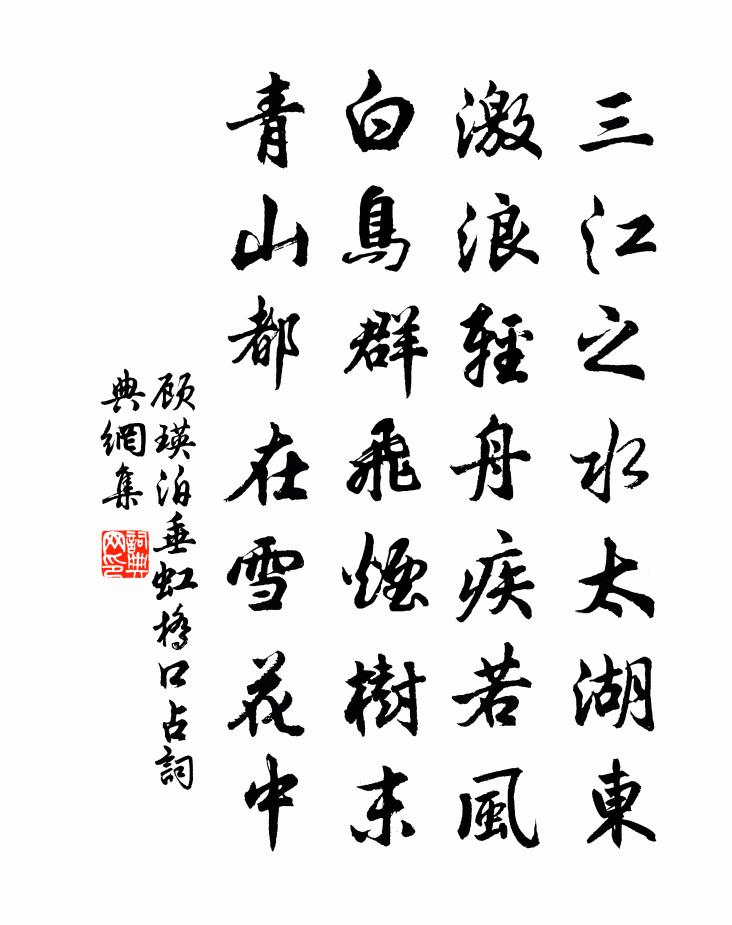 三江之水太湖東
激浪輕舟疾若風
白鳥群飛煙樹末
青山都在雪花中
顾瑛泊垂虹橋口占詞
典網集
詞典网印